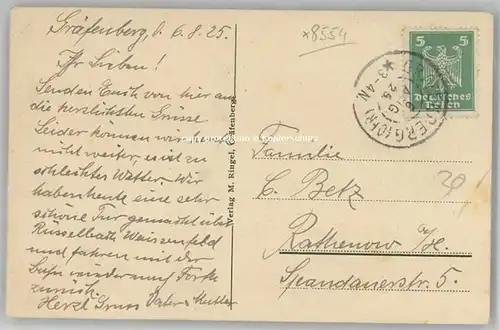 Gräfenberg, d. 6.8.25.
Ihr Lieben!
Senden Euch von hier aus
die herzlichsten Grüsse
Leider können wir heute
nicht weiter, weil zu
schlechtes Wetter. Wir
haben heute eine sehr
schöne Tur gemacht über
Rüsselbach Weissenfeld
und fahren mit der
zurück.
Herzl. Gruss Vater u. Mutter
Verlag M. Ringel, Gräfenberg
*8554
5 5
Deutsches
Reich
BERG (OFR)
*3-4N
Familie
C. Betz
Rathenow a/H.
Spandauerstr. 5.